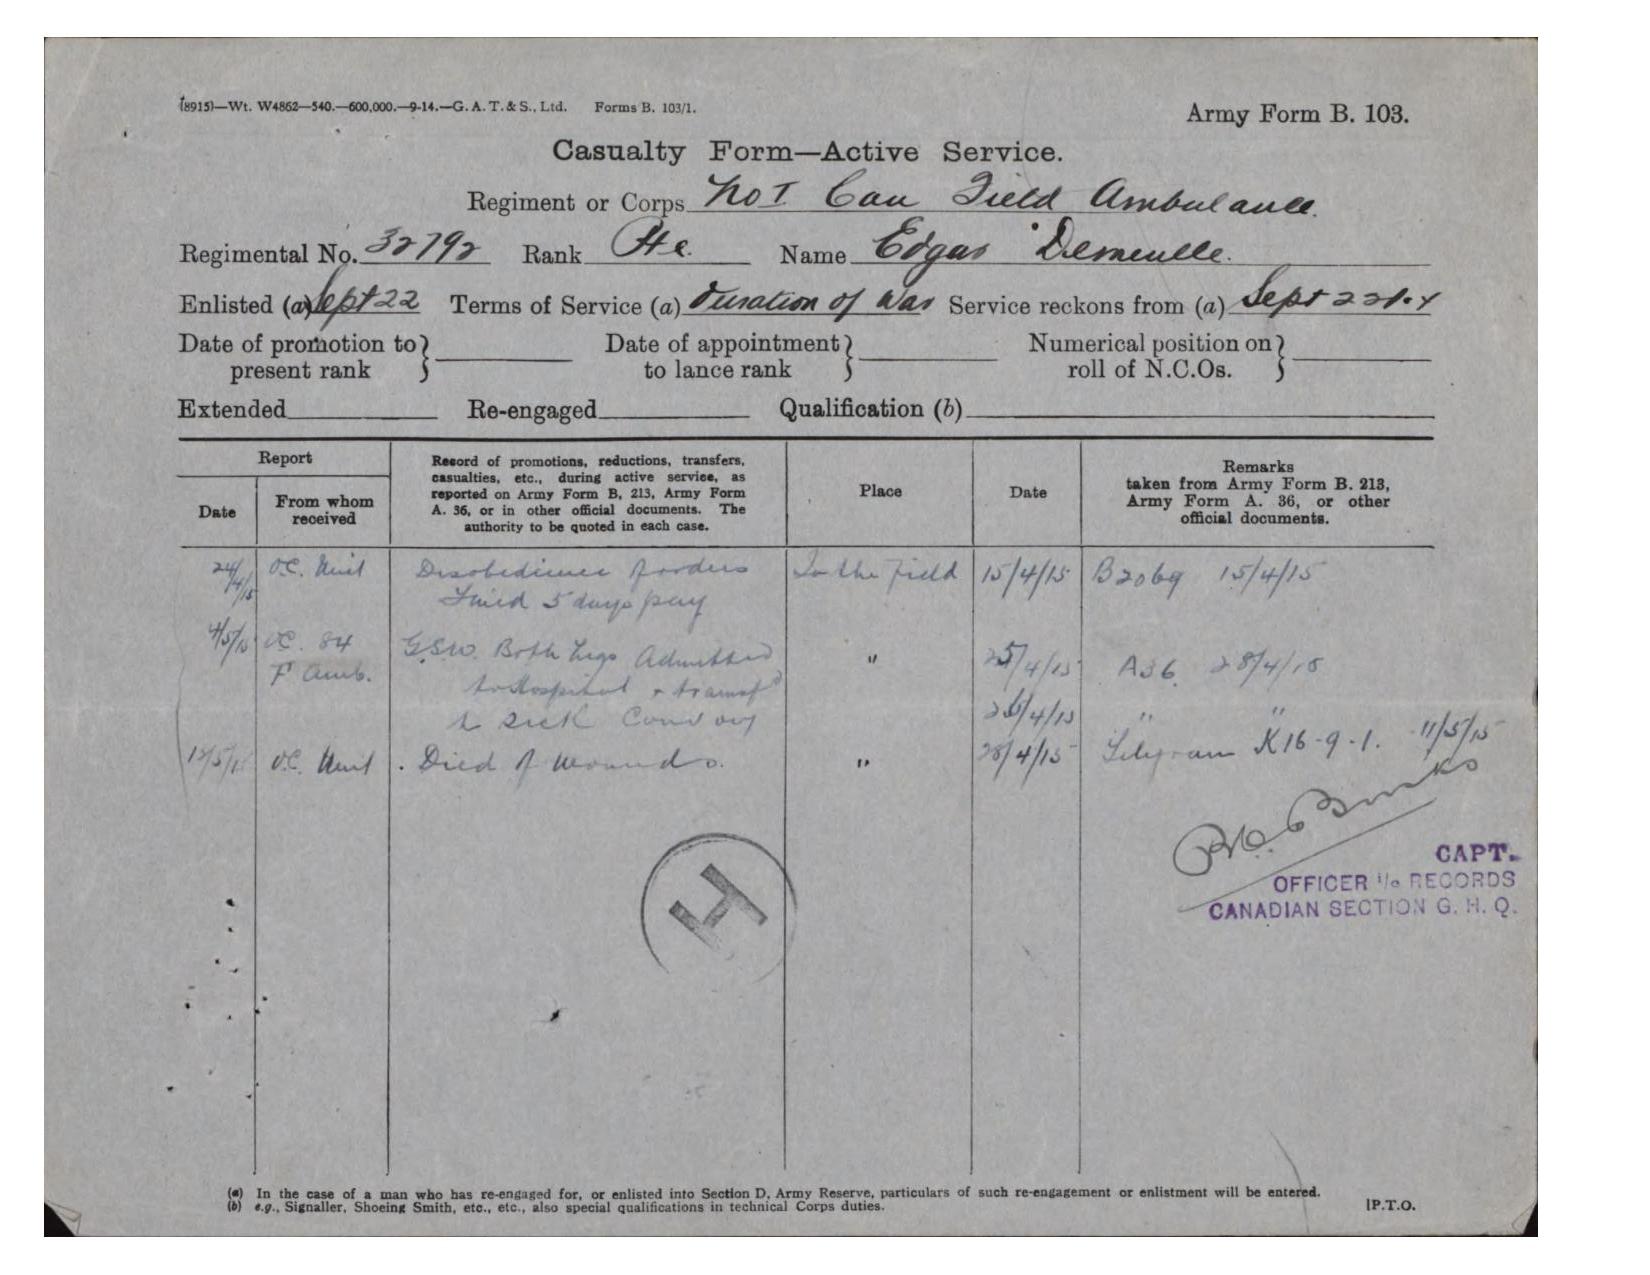 (8915)—Wt. W4862—540.—600,000.—9-14.—G. A. T. & S., Ltd. Forms B. 103/1.
Army Form B. 103.
Casualty Form—Active Service.
Regiment or Corps No 1 Can Field Ambulance.
Regimental No. 32792 Rank Pte. Name Edgar Demeulle.
Enlisted (a) Sept 22 Terms of Service (a) Duration of War Service reckons from (a) Sept 22
Date of promotion to } present rank
Date of appointment } to lance rank
Numerical position on } roll of N.C.Os.
Extended Re-engaged Qualification (b)
Report
Date
From whom received
Record of promotions, reductions, transfers,
casualties, etc., during active service, as
reported on Army Form B, 213, Army Form
A. 36, or in other official documents. The
authority to be quoted in each case.
Place
Date
Remarks
taken from Army Form B. 213,
Army Form A. 36, or other
official documents.
24/4/15 O.C. Unit Disobedience of orders In the Field 15/4/15 B2069 15/4/15
Fined 5 days pay
4/5/15 OC. 84 G.S.W. Both Legs Admitted " 25/4/15 A36 28/4/15
F Amb. to Hospital + transfd
to sick Convoy /4/15 " "
12/5/15 O.C. Unit . Died of wounds. " 28/4/15 Telegram K16-9-1. 11/5/15
H
CAPT.
OFFICER i/c RECORDS
CANADIAN SECTION G. H. Q.
(a) In the case of a man who has re-engaged for, or enlisted into Section D, Army Reserve, particulars of such re-engagement or enlistment will be entered.
(b) e.g., Signaller, Shoeing Smith, etc., etc., also special qualifications in technical Corps duties.
[P.T.O.